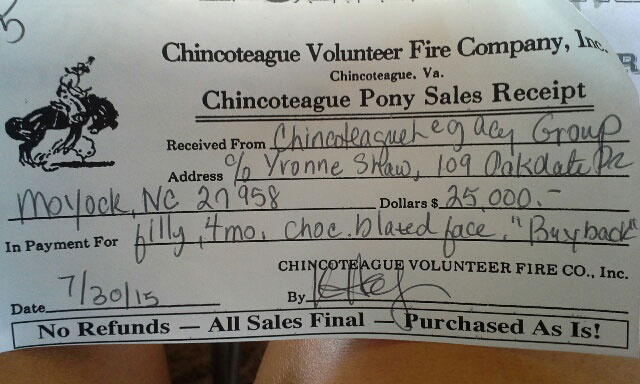 Chincoteague Volunteer Fire Company, Inc.
Chincoteague, Va.
Chincoteague Pony Sales Receipt
Received From Chincoteague Legacy Group
Address c/o Yvonne Shaw, 109 Oakdale Dr
Moyock, NC 27958 Dollars $ 25,000.-
In Payment For filly, 4mo, choc. blazed face, "Buyback"
CHINCOTEAGUE VOLUNTEER FIRE CO., Inc.
Date 7/30/15 By
No Refunds — All Sales Final — Purchased As Is!